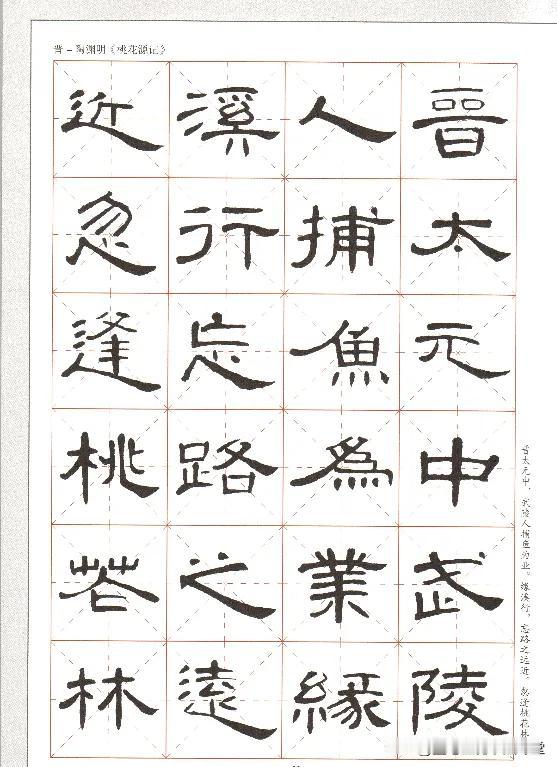 晋－陶渊明《桃花源记》
晉太元中武陵
人捕魚為業緣
溪行忘路之遠
近忽逢桃花林
晋太元中，武陵人捕鱼为业。缘溪行，忘路之远近。忽逢桃花林